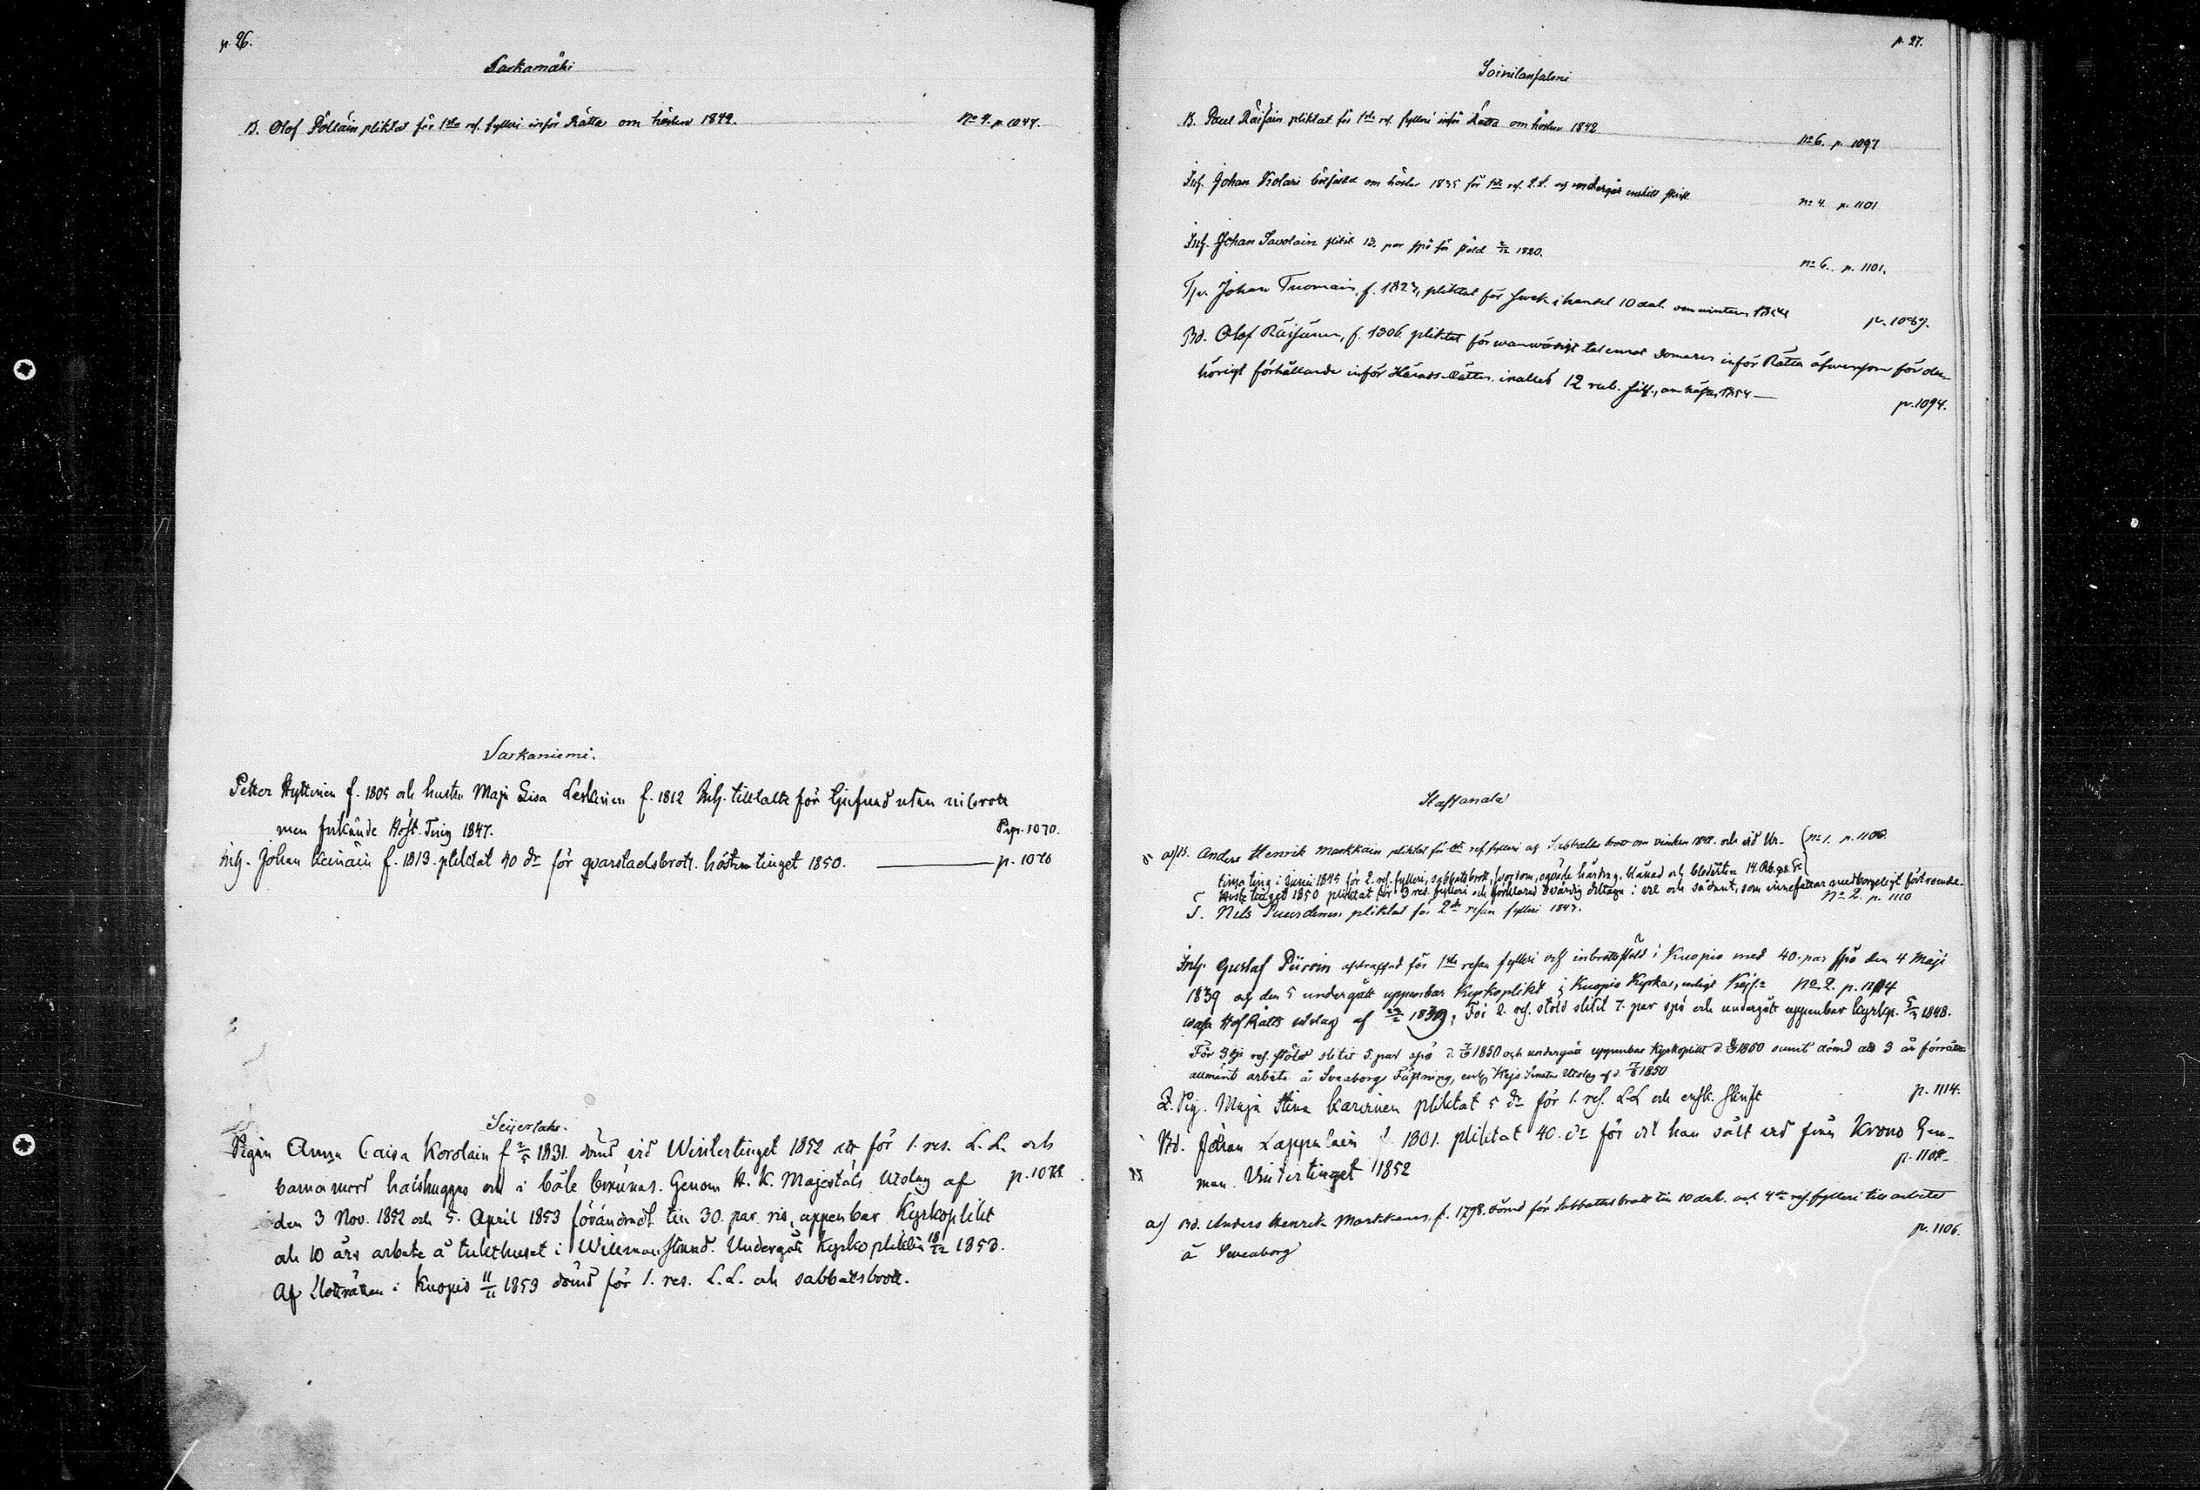 p. 26.
Sarkamäki
B. Olof Pöllän pliktat för 1sta res. fylleri inför Rätta om hösten 1842. No 4. p. 1047.
Sarkaniemi.
Petter Hyttinen f. 1805 och hustru Maja Lisa Leskinen f. 1812 Inh. tilltalte för tjufnad utan inbrott
men frikände Höst Ting 1847. p. 1070.
Inh. Johan Keinäin f. 1813. pliktat 40 dr för qvarstadsbrott hösttinget 1850. p. 1076
Seijerlaks.
Pigan Anna Caisa Korolain f 2/5 1831. dömd vid Wintertinget 1852 att för 1. res. L.L. och
barnamord halshuggas och i båle brännas. Genom H. K. Majestäts Utslag af p. 1078
den 3 Nov. 1852 och 5. April 1853 förändradt till 30. par ris, uppenbar Kyrkoplikt
och 10 års arbete å tukthuset i Willmanstrand. Undergått Kyrkoplikten 18/12 1853.
Af Hofrätten i Kuopio 11/11 1853 dömd för 1. res. L.L. och sabbatsbrott.
p. 27.
Soinilansalmi
B. Paul Räisäin pliktat för 1sta res. fylleri inför Rätta om hösten 1842
No 6. p. 1097
Inh. Johan Kolari om hösten 1835 för 1sta res. L.L. och undergår enskilt skrift
No 4. p. 1101
Inh. Johan Savolain slitit 13. par spö för stöld 1820.
No 6. p. 1101.
Johan Tuomain, f. 1827, pliktat för i handel 10 dal. om wintern 1844
p. 1089.
Bd. Olof Räisänen, f. 1806 pliktat för wanwördigt tal emot Domaren inför Rätta äfwensom för oku-
hörigt förhållande inför Härads-Rätten inalles 12 rub. silf., om hösten 1854
p. 1094.
Haftanala
a) B. Anders Henrik Markkain pliktat för res fylleri och Sabbatsbrott om vintern och vid Ur- No 1. p. 1106.
tima ting i Junii 1845 för 2. res. fylleri, sabbatsbrott, svordom, hårdrag, blånad och blodsutin 14.
Höste tinget 1850 pliktat för 3 res. fylleri och förklarad ovärdig deltaga i val och sådant, som innefattar medborgerligt förtroende.
S. Nils pliktat för 2dra resan fylleri 1843. No 2. p. 1110
Inh. Gustaf Piiroin afstraffad för 1sta resan fylleri och inbrottsstöld i Kuopio med 40. par spö den 4 Maji
1839 och den 5 undergått uppenbar Kyrkoplikt i Kuopio Kyrka, enligt Kejs: No 2. p. 1114
Wasa Hof Rätts utslag af 1839; För 2. res. stöld slitit 7. par spö och undergått uppenbar kyrkop. 1848.
För 3dje res. stöld slitit 5. par spö d. 1850 och undergått uppenbar Kyrkoplikt d. 1850 samt dömd att 3 år förrätta
allmänt arbete å Sveaborgs Fästning, enl. Kejs Senatens Utslag af d. 1850
Q. Pig. Maja Stina Karvinen pliktat 5 dr för 1. res. L.L. och enskt. skrift p. 1114.
Bd. Johan Lappalain f 1801. pliktat 40. dr för det han sålt ved från Krono Gem-
man. Vintertinget 1852 p. 1108.
a) Bd. Anders Henrik Markkanen, f. 1798. dömd för Sabbatsbrott till 10 dal. och 4de res fylleri till arbete
å Sveaborg p. 1106.